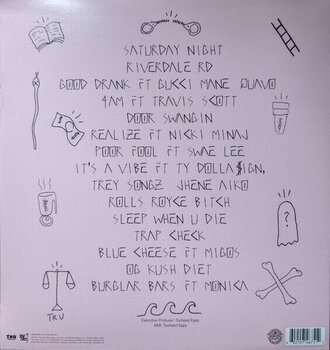 SATURDAY NIGHT
RIVERDALE RD
GOOD DRANK FT GUCCI MANE QUAVO
4AM FT TRAVIS SCOTT
DOOR SWANGIN
REALIZE FT NICKI MINAJ
POOR FOOL FT SWAE LEE
IT'S A VIBE FT TY DOLLA $IGN,
TREY SONGZ JHENE AIKO
ROLLS ROYCE BITCH
SLEEP WHEN U DIE
TRAP CHECK
BLUE CHEESE FT MIGOS
OG KUSH DIET
BURGLAR BARS FT MONICA
TRU
Executive Producer: Tauheed Epps
A&R: Tauheed Epps
TRU